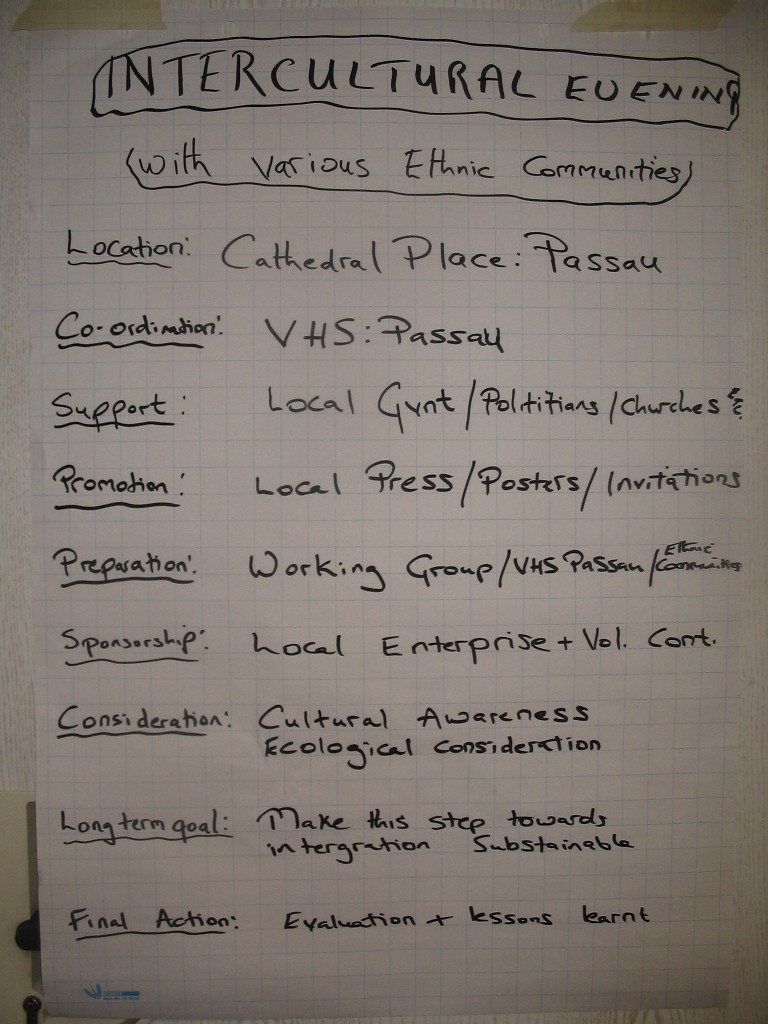 INTERCULTURAL EVENING
(with Various Ethnic Communities)
Location: Cathedral Place: Passau
Co-ordination: VHS: Passau
Support: Local Gvnt/Polititians/Churches &
Promotion: Local Press/Posters/Invitations
Preparation: Working Group/VHS Passau/Ethnic Communities
Sponsorship: Local Enterprise + Vol. Cont.
Consideration: Cultural Awareness
Ecological consideration
Long term goal: Make this step towards
intergration Substainable
Final Action: Evaluation + lessons learnt